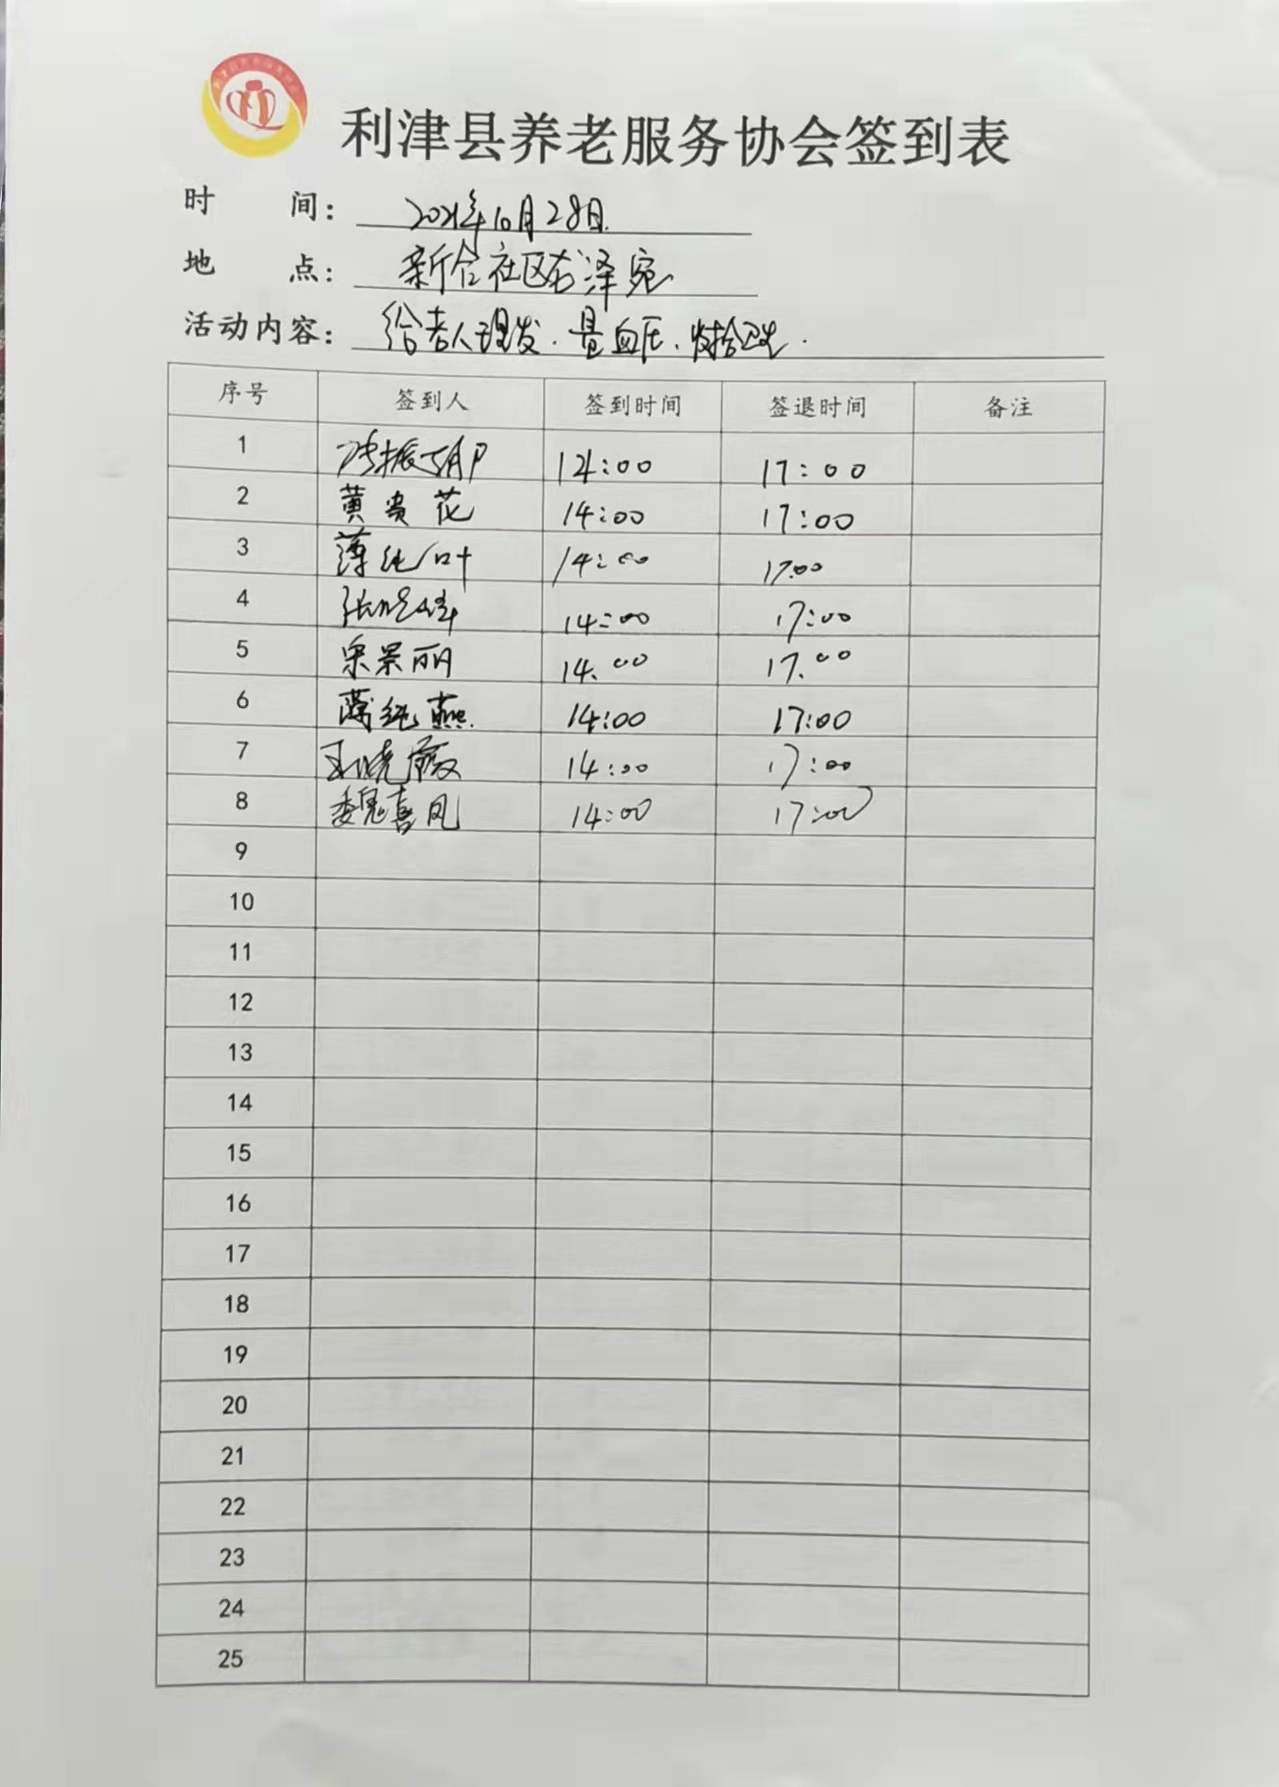 利津县养老服务协会签到表
时 间： 2021年10月28日.
地 点： 新合社区
活动内容： 给老人理发.量血压、
序号 签到人 签到时间 签退时间 备注
1 14:00 17:00
2 黄贵花 14:00 17:00
3 薄纯叶 14:00 17:00
4 14:00 17:00
5 景丽 14.00 17.00
6 薄纯燕. 14:00 17:00
7 王晓薇 14:00 17:00
8 魏喜凤 14:00 17:00
9
10
11
12
13
14
15
16
17
18
19
20
21
22
23
24
25